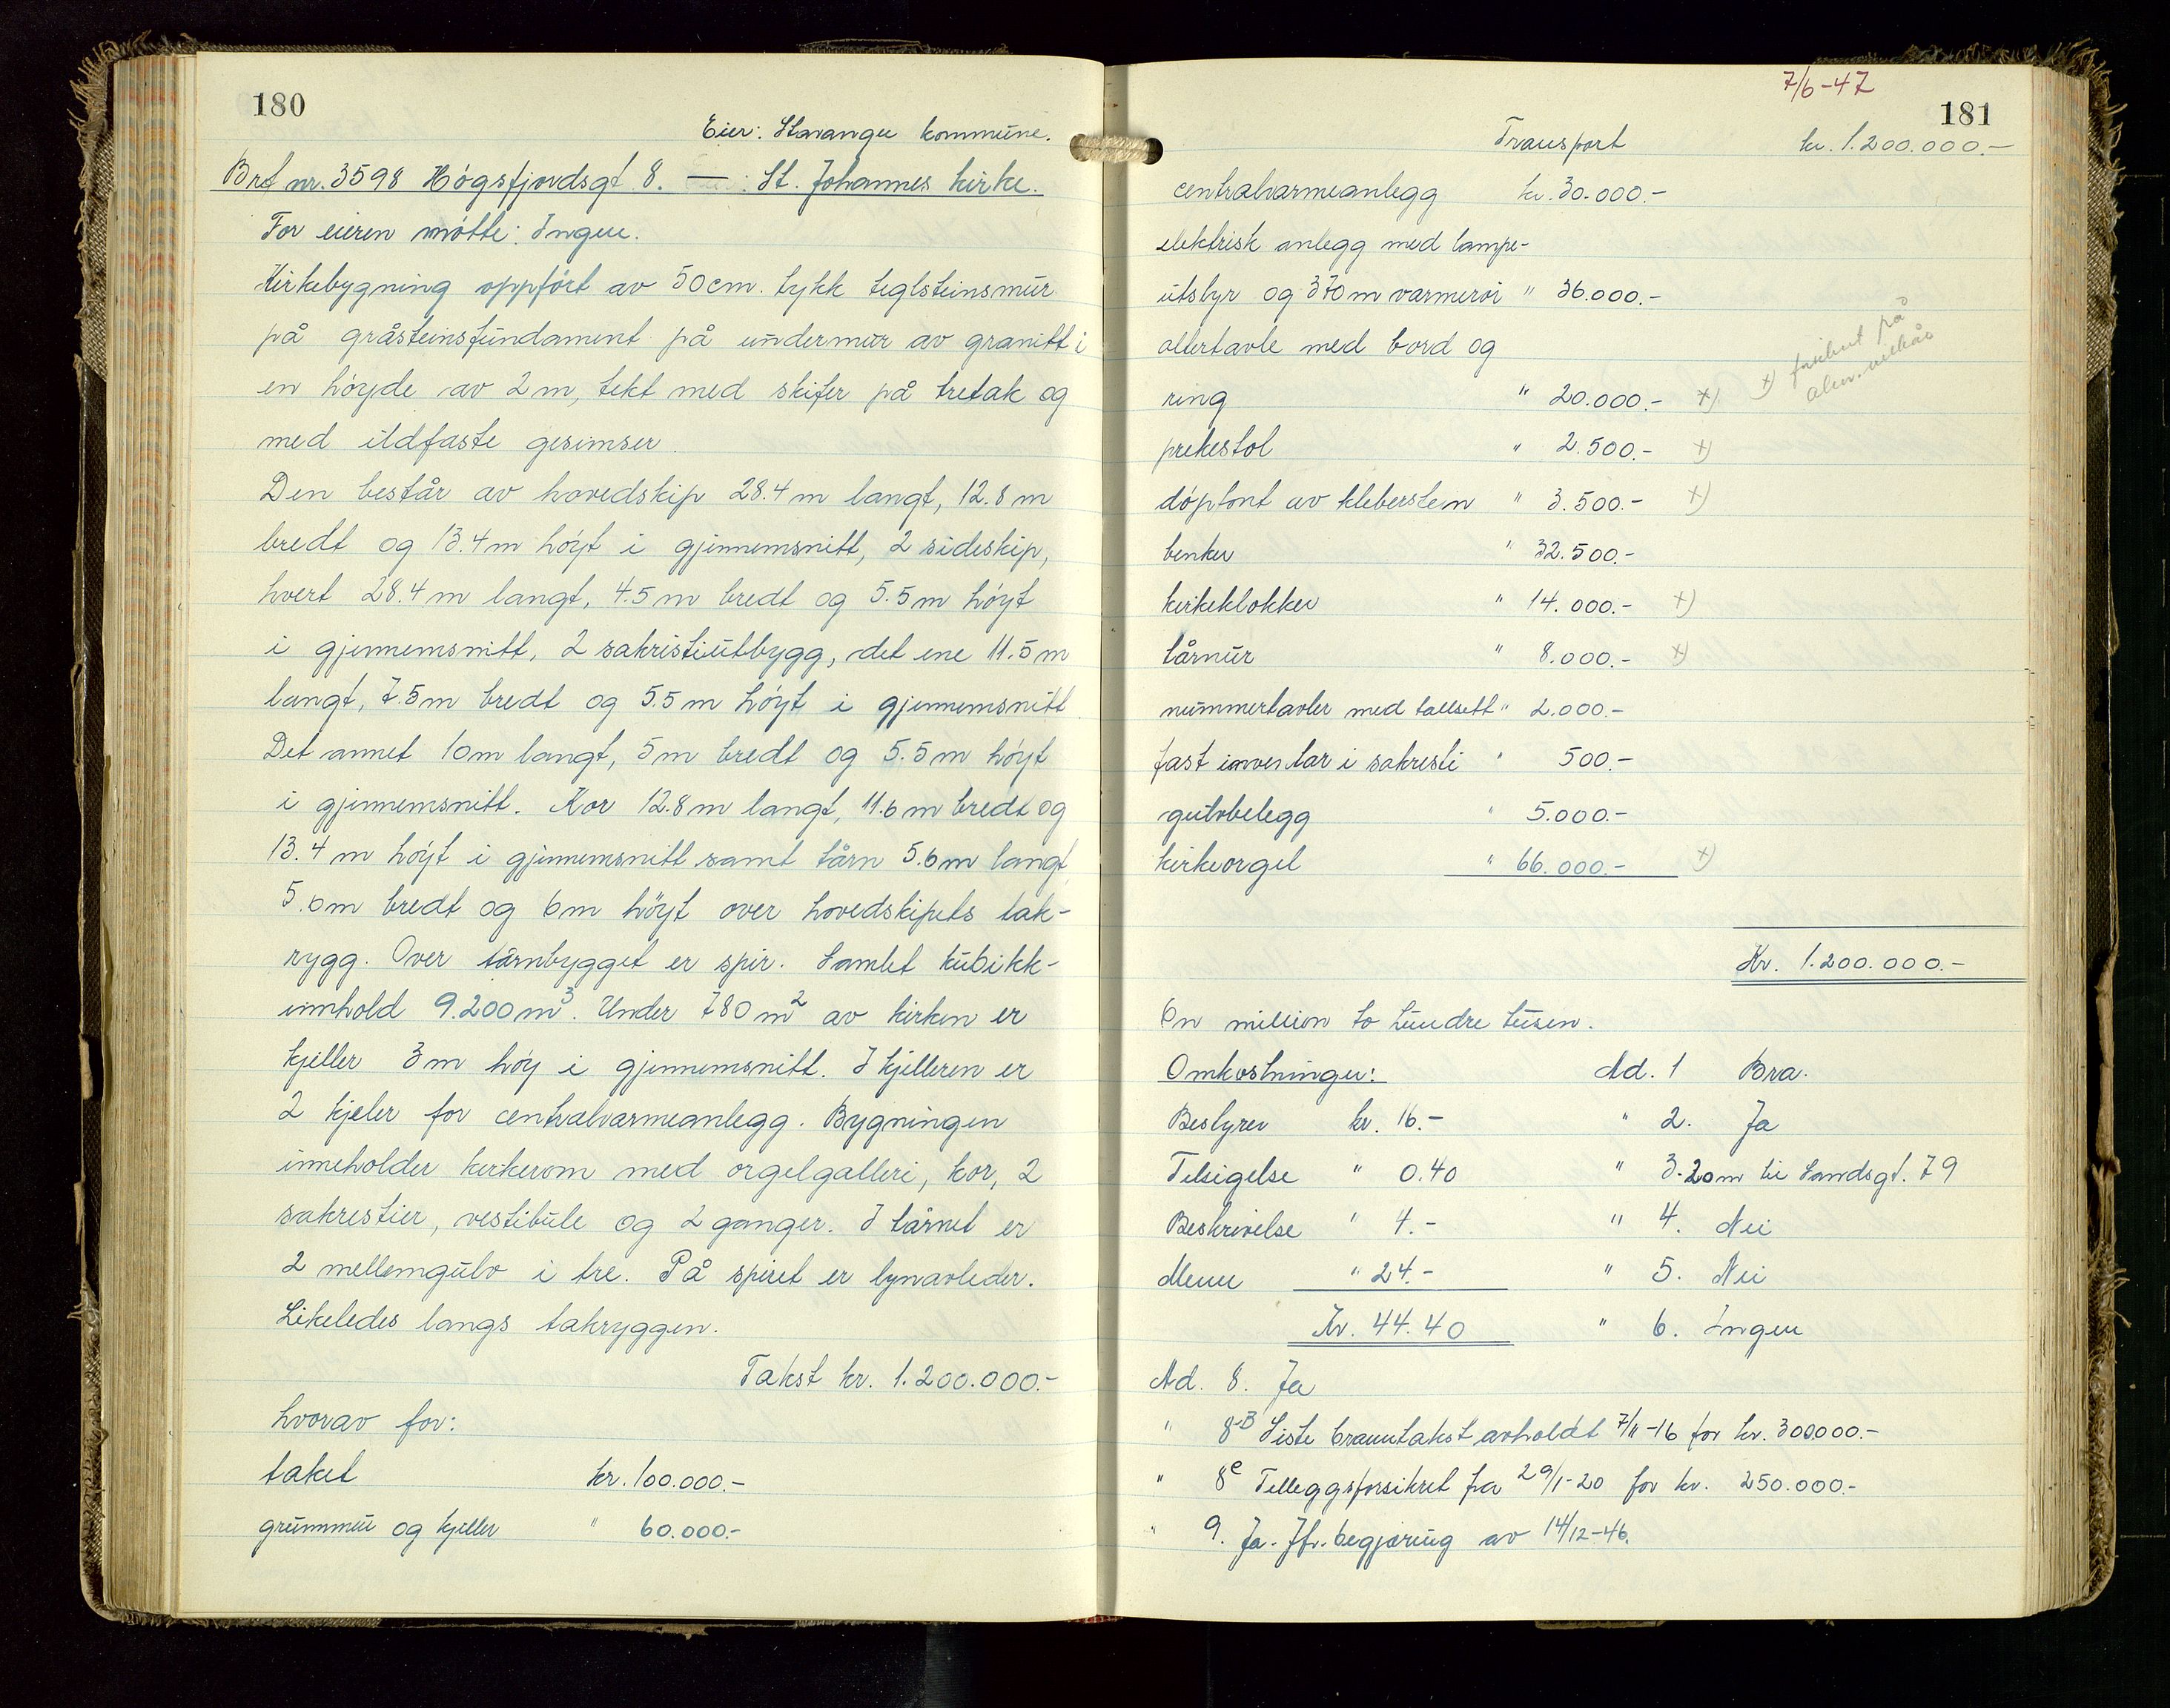 180
Eier: Stavanger kommune.
Brt nr. 3598 Högsfjordsgt 8. — : St. Johannes kirke.
For eieren mötte: Ingen.
Kirkebygning oppfört av 50 cm. tykk teglsteinsmur
på gråsteinsfundament på undermur av granitt i
en höyde av 2 m, tekt med skifer på tretak og
med ildfaste gesimser.
Den består av hovedskip 28.4 m langt, 12.8 m
bredt og 13.4 m höyt i gjennemsnitt, 2 sideskip,
hvert 28.4 m langt, 4.5 m bredt og 5.5 m höyt
i gjennemsnitt, 2 sakristiutbygg, det ene 11.5 m
langt, 7.5 m bredt og 5.5 m höyt i gjennemsnitt.
Det annet 10 m langt, 5 m bredt og 5.5 m höyt
i gjennemsnitt. Kor 12.8 m langt, 11.6 m bredt og
13.4 m höyt i gjennemsnitt samt tårn 5.6 m langt,
5.6 m bredt og 6 m höyt over hovedskipets tak-
rygg. Over tårnbygget er spir. Samlet kubikk-
innhold 9.200 m³. Under 780 m² av kirken er
kjeller 3 m höy i gjennemsnitt. I kjelleren er
2 kjeler for centralvarmeanlegg. Bygningen
inneholder kirkerom med orgelgalleri, kor, 2
sakrestier, vestibule og 2 ganger. I tårnet er
2 mellemgulv i tre. På spiret er lynavleder.
Likeledes langs takryggen.
Takst kr. 1.200.000.-
hvorav for:
taket kr. 100.000.-
grunnmur og kjeller " 60.000.-
7/6-47
181
Transport kr. 1.200.000.-
centralvarmeanlegg kr. 30.000.-
elektrisk anlegg med lampe-
utstyr og 370 m varmerör " 36.000.-
altertavle med bord og
ring " 20.000.- +)
+) forsikret på
alm. vilkår
prekestol " 2.500.- +)
döpefont av kleberstein " 3.500.- +)
benker " 32.500.-
kirkeklokker " 14.000.- +)
tårnur " 8.000.- +)
nummertavler med tallsett " 2.000.-
fast inventar i sakresti " 500.-
gulvbelegg " 5.000.-
kirkeorgel " 66.000.- +)
Kr. 1.200.000.-
En million to hundre tusen.
Omkostninger: Ad. 1 Bra.
Bestyrer kr. 16.- " 2. Ja
Tilsigelse " 0.40 " 3. 20 m til Sandsgt. 79
Beskrivelse " 4.- " 4. Nei
Menn " 24.- " 5. Nei
Kr. 44.40 " 6. Ingen
Ad. 8. Ja
" 8B Siste branntakst avholdt 7/11-16 for kr. 300.000.-
" 8e Tilleggsforsikret fra 29/1-20 for kr. 250.000.-
" 9. Ja. Jfr. begjæring av 14/12-46.